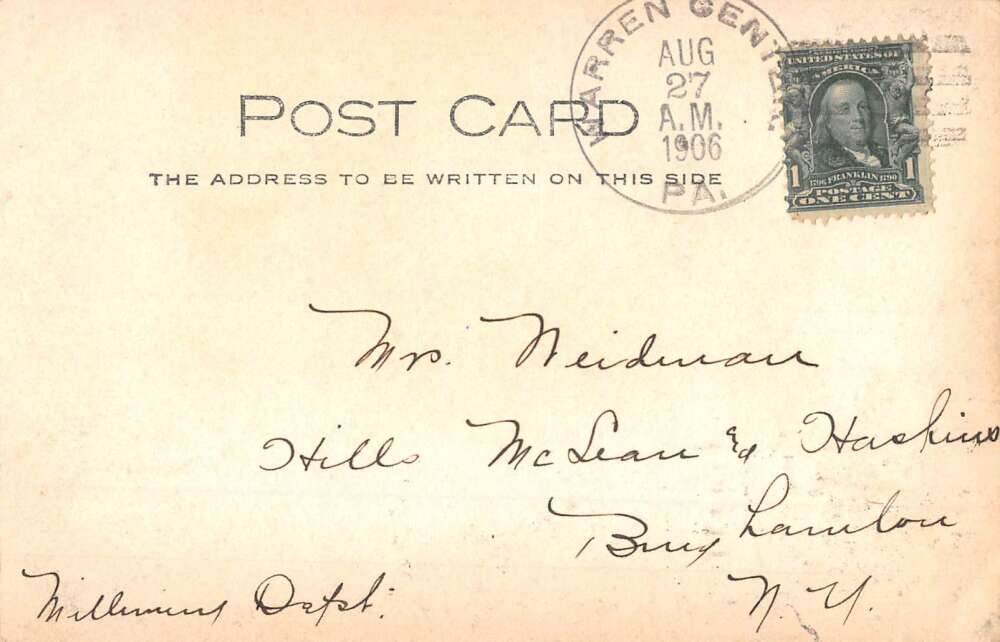 POST CARD
THE ADDRESS TO BE WRITTEN ON THIS SIDE
WARREN CENTER
AUG
27
A.M.
1906
PA.
UNITED STATES OF
AMERICA
1706 FRANKLIN 1790
1 POSTAGE 1
ONE CENT
Mrs. Weidman
Hills McLean & Haskins
Binghamton
N. Y.
Millinery Dept.